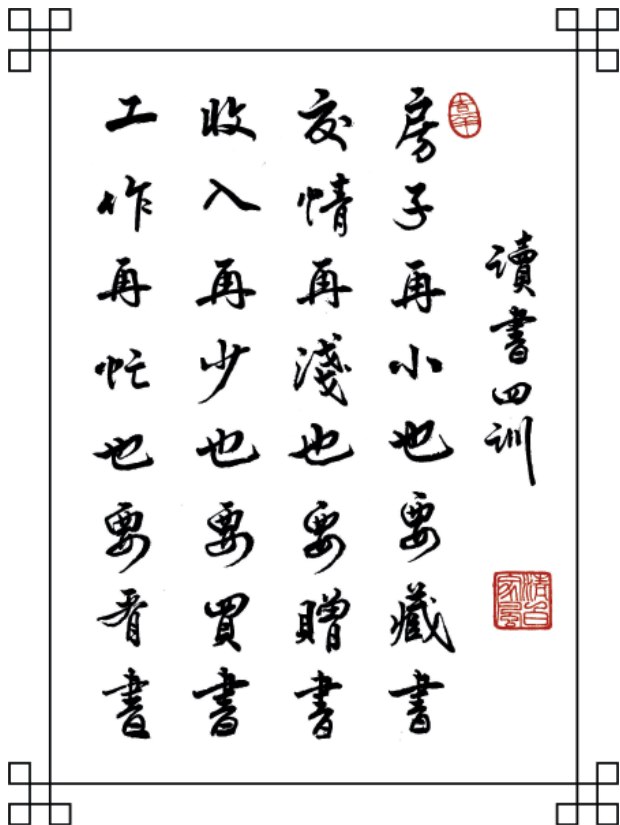 讀書四訓
房子再小也要藏書
交情再淺也要贈書
收入再少也要買書
工作再忙也要看書
清白家風